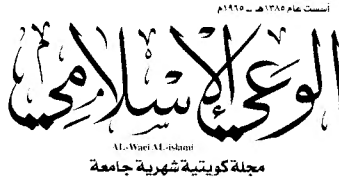 أسست عام ١٣٨٥هـ ــ ١٩٦٥م
الوعي الإسلامي
AL-Waei AL-islami
مجلة كويتية شهرية جامعة